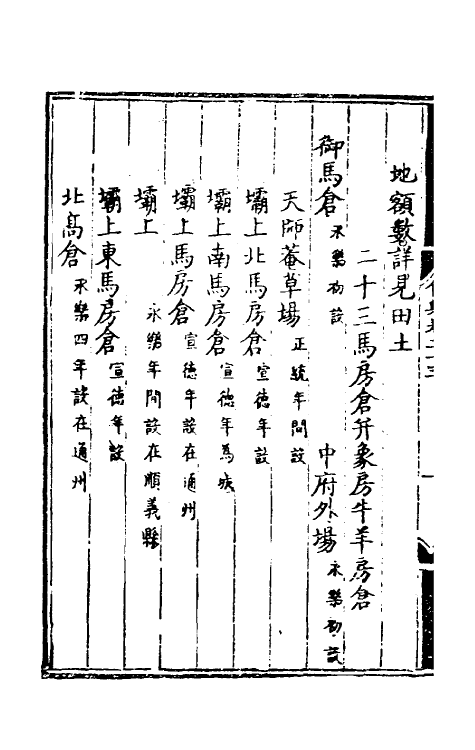 地額數詳見田土
二十三馬房倉并象房牛羊房倉
御馬倉 永樂初設 中府外場 永樂初設
天師菴草場 正統年間設
壩上北馬房倉 宣德年設
壩上南馬房倉 宣德年為
壩上馬房倉 宣德年設在通州
壩上 永樂年間設在順義縣
壩上東馬房倉 宣德年設
北髙倉 永樂四年設在通州